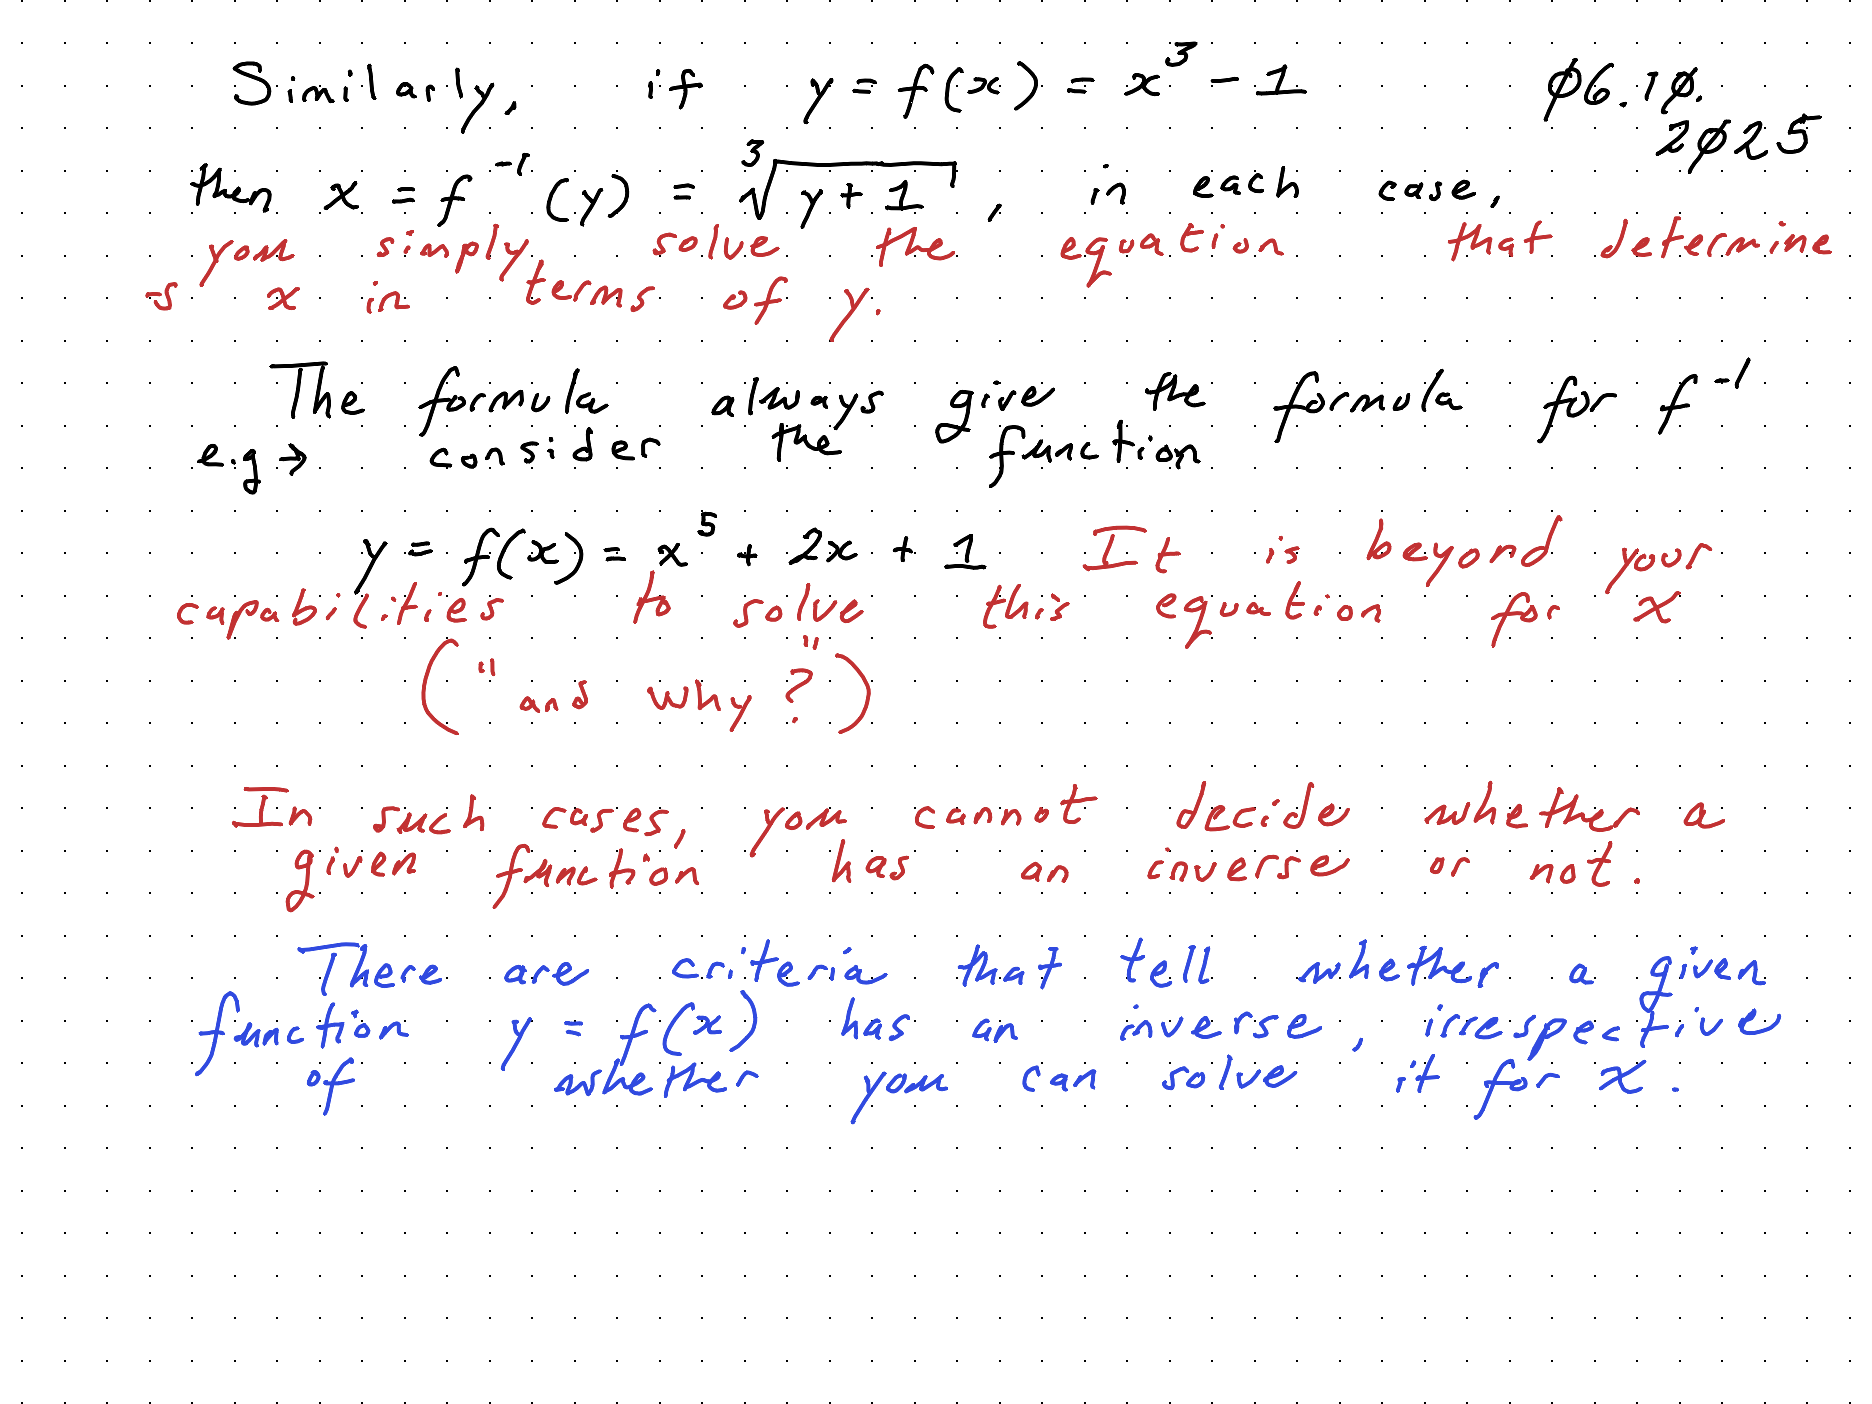 Similarly, if y = f(x) = x³ - 1
ø6.1ø.
2ø25
then x = f⁻¹(y) = ³√(y+1), in each case,
you simply solve the equation that determine
-s x in terms of y.
The formula always give the formula for f⁻¹
e.g → consider the function
y = f(x) = x⁵ + 2x + 1 It is beyond your
capabilities to solve this equation for x
("and why?")
In such cases, you cannot decide whether a
given function has an inverse or not.
There are criteria that tell whether a given
function y = f(x) has an inverse, irrespective
of whether you can solve it for x.